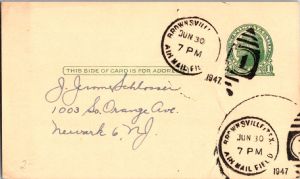 BROWNSVILLE, TEX.
JUN 30
7 PM
1947
AIR MAIL FIELD
1
THIS SIDE OF CARD IS FOR ADDRESS
J. Jerome Schlosser
1003 So. Orange Ave.
Newark 6 NJ
BROWNSVILLE, TEX.
JUN 30
7 PM
1947
AIR MAIL FIELD